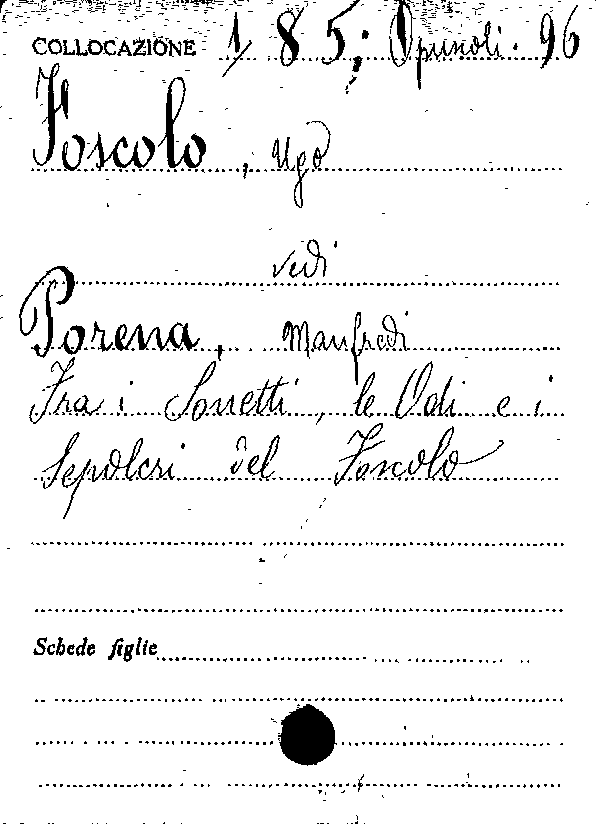 COLLOCAZIONE 1/85; Opuscoli. 96
Foscolo, Ugo
vedi
Porena, Manfredi
Fra i Sonetti, le Odi e i
Sepolcri del Foscolo
Schede figlie